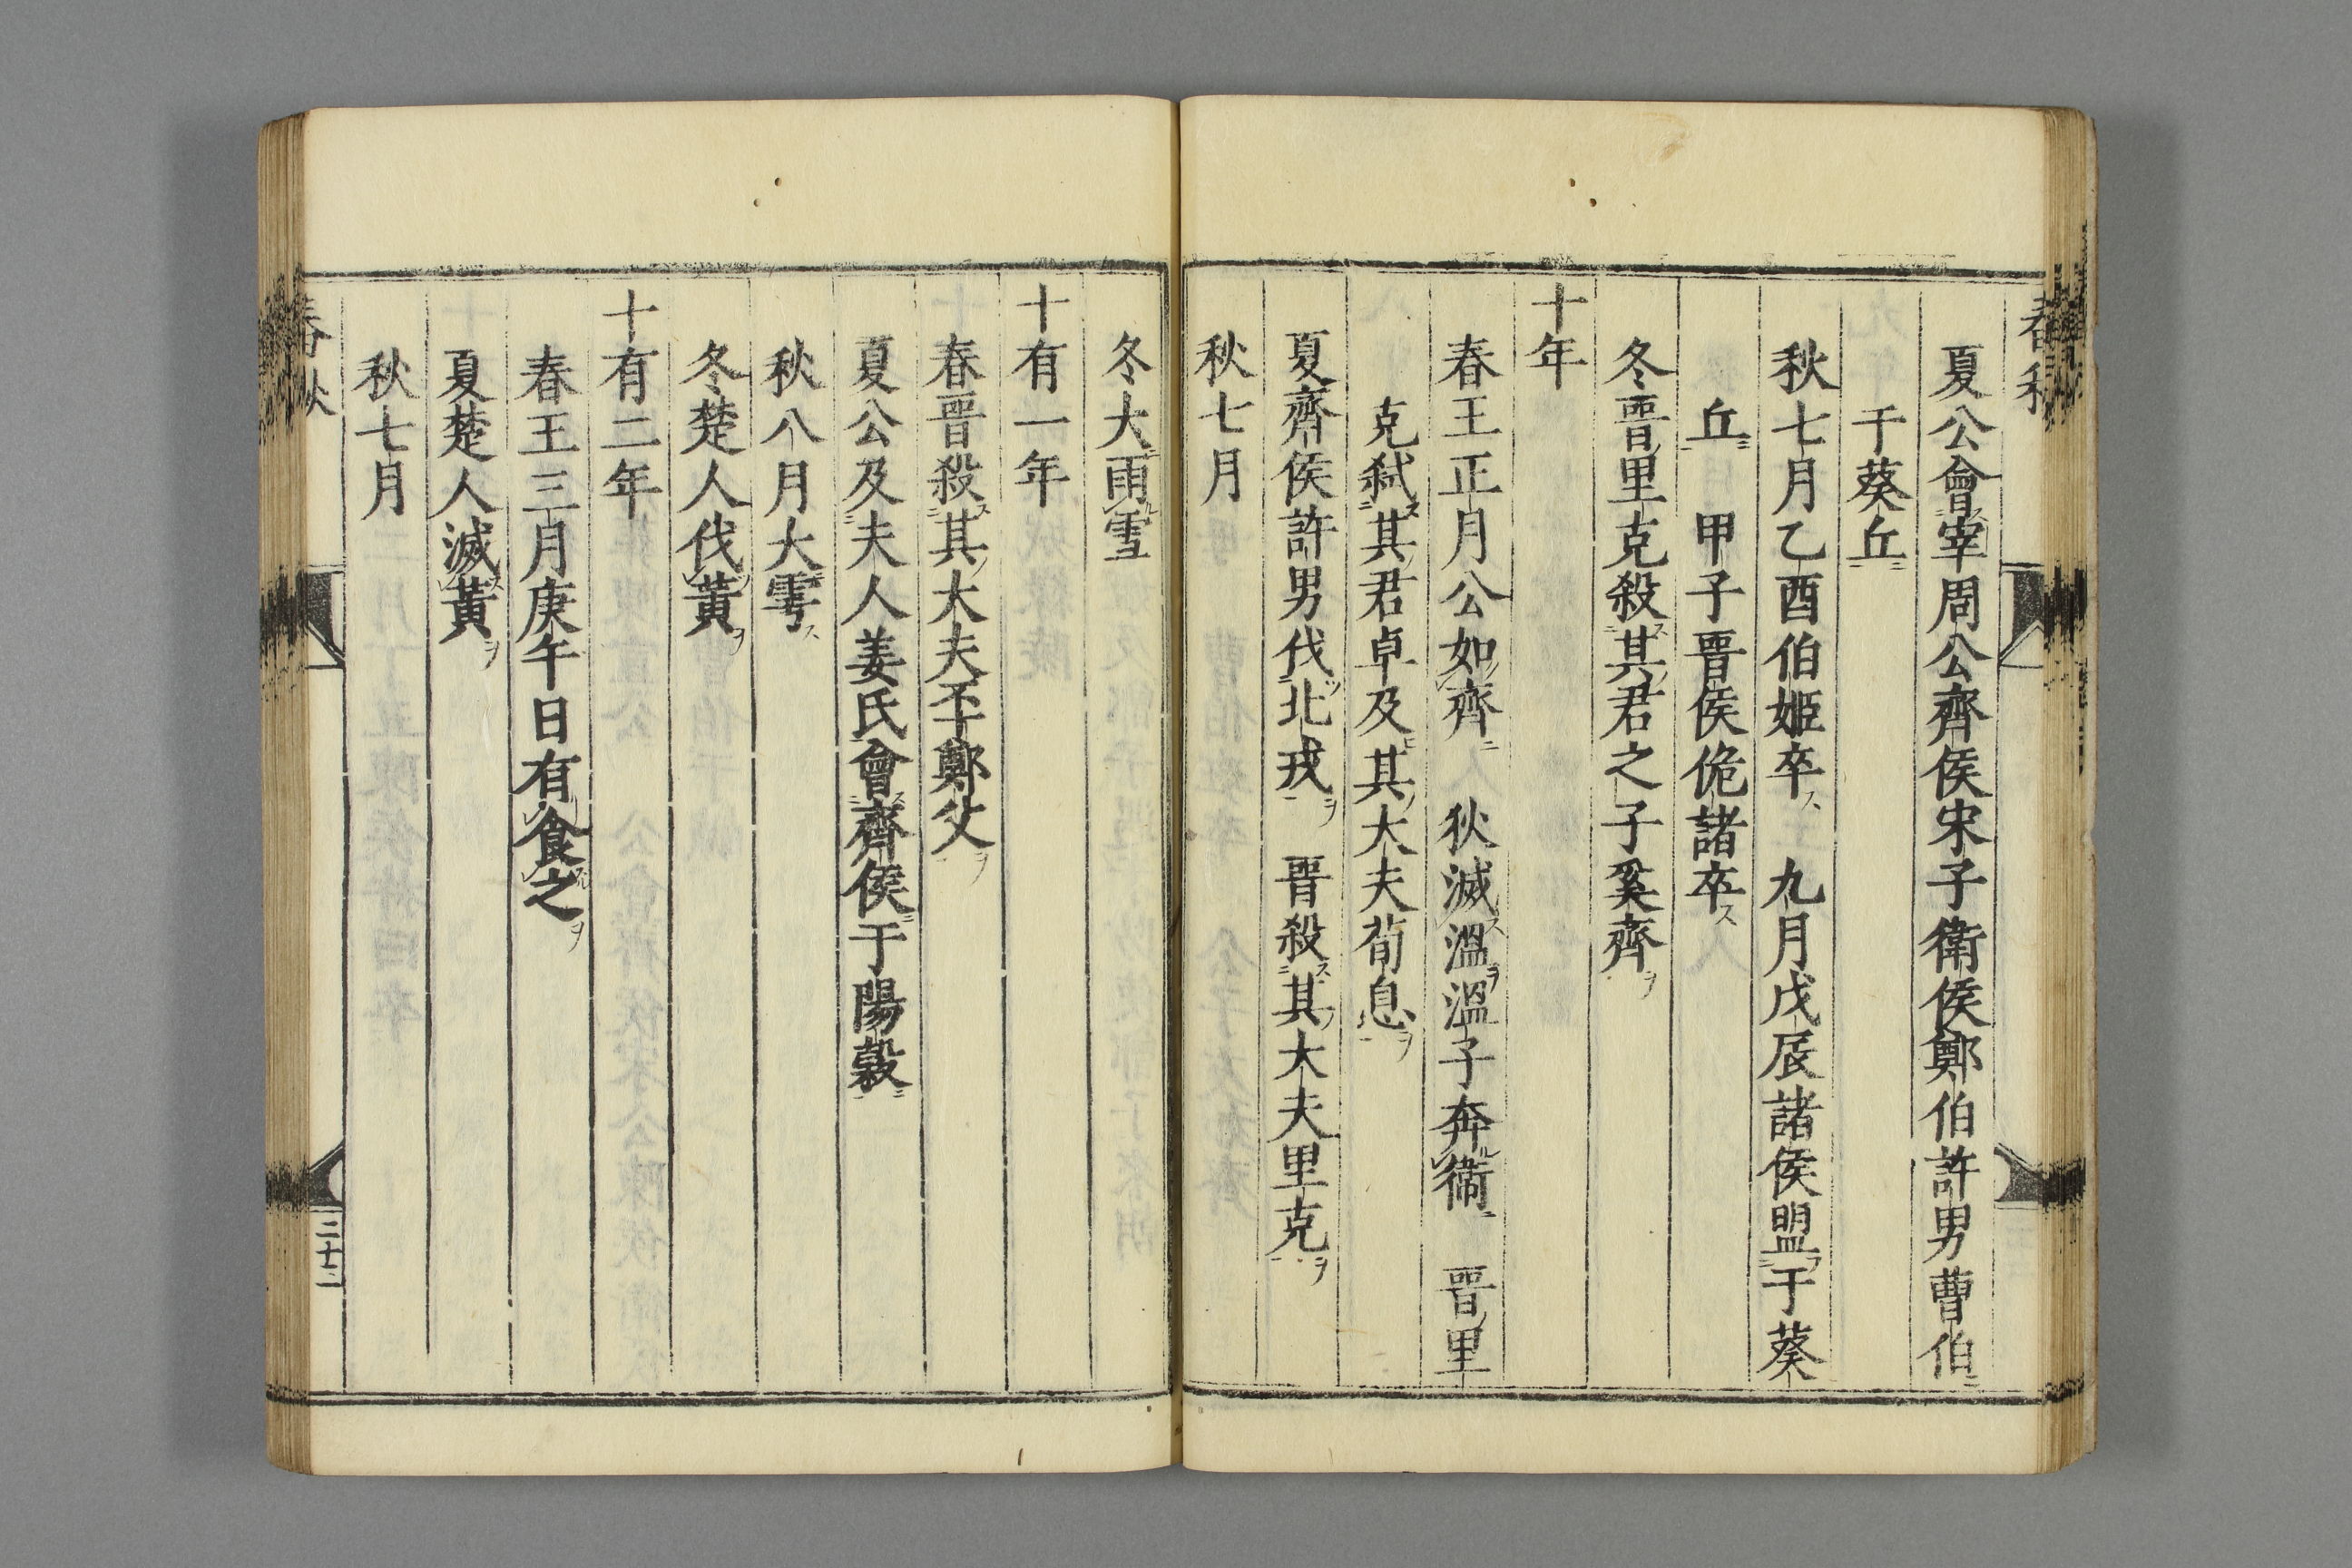 春秋
夏公會宰周公齊侯宋子衛侯鄭伯許男曹伯
于葵丘
秋七月乙酉伯姬卒　九月戊辰諸侯盟于葵
丘　甲子晋侯佹諸卒
冬晋里克殺其君之子奚齊
十年
春王正月公如齊　狄滅溫溫子奔衛　晋里
克弑其君卓及其大夫荀息
夏齊侯許男伐北戎　晋殺其大夫里克
秋七月
冬大雨雪
十有一年
春晋殺其大夫丕鄭父
夏公及夫人姜氏會齊侯于陽穀
秋八月大雩
冬楚人伐黃
十有二年
春王三月庚午日有食之
夏楚人滅黃
秋七月
春秋
二十二